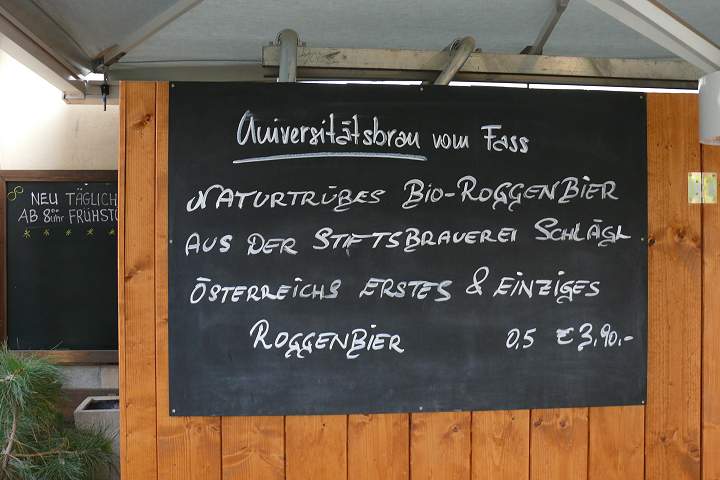 Universitätsbräu vom Fass
NATURTRÜBES BIO-ROGGENBIER
AUS DER STIFTSBRAUEREI SCHLÄGL
ÖSTERREICHS ERSTES & EINZIGES
ROGGENBIER 0,5 € 3,90.-
NEU TÄGLICH
AB 8 Uhr FRÜHSTÜ